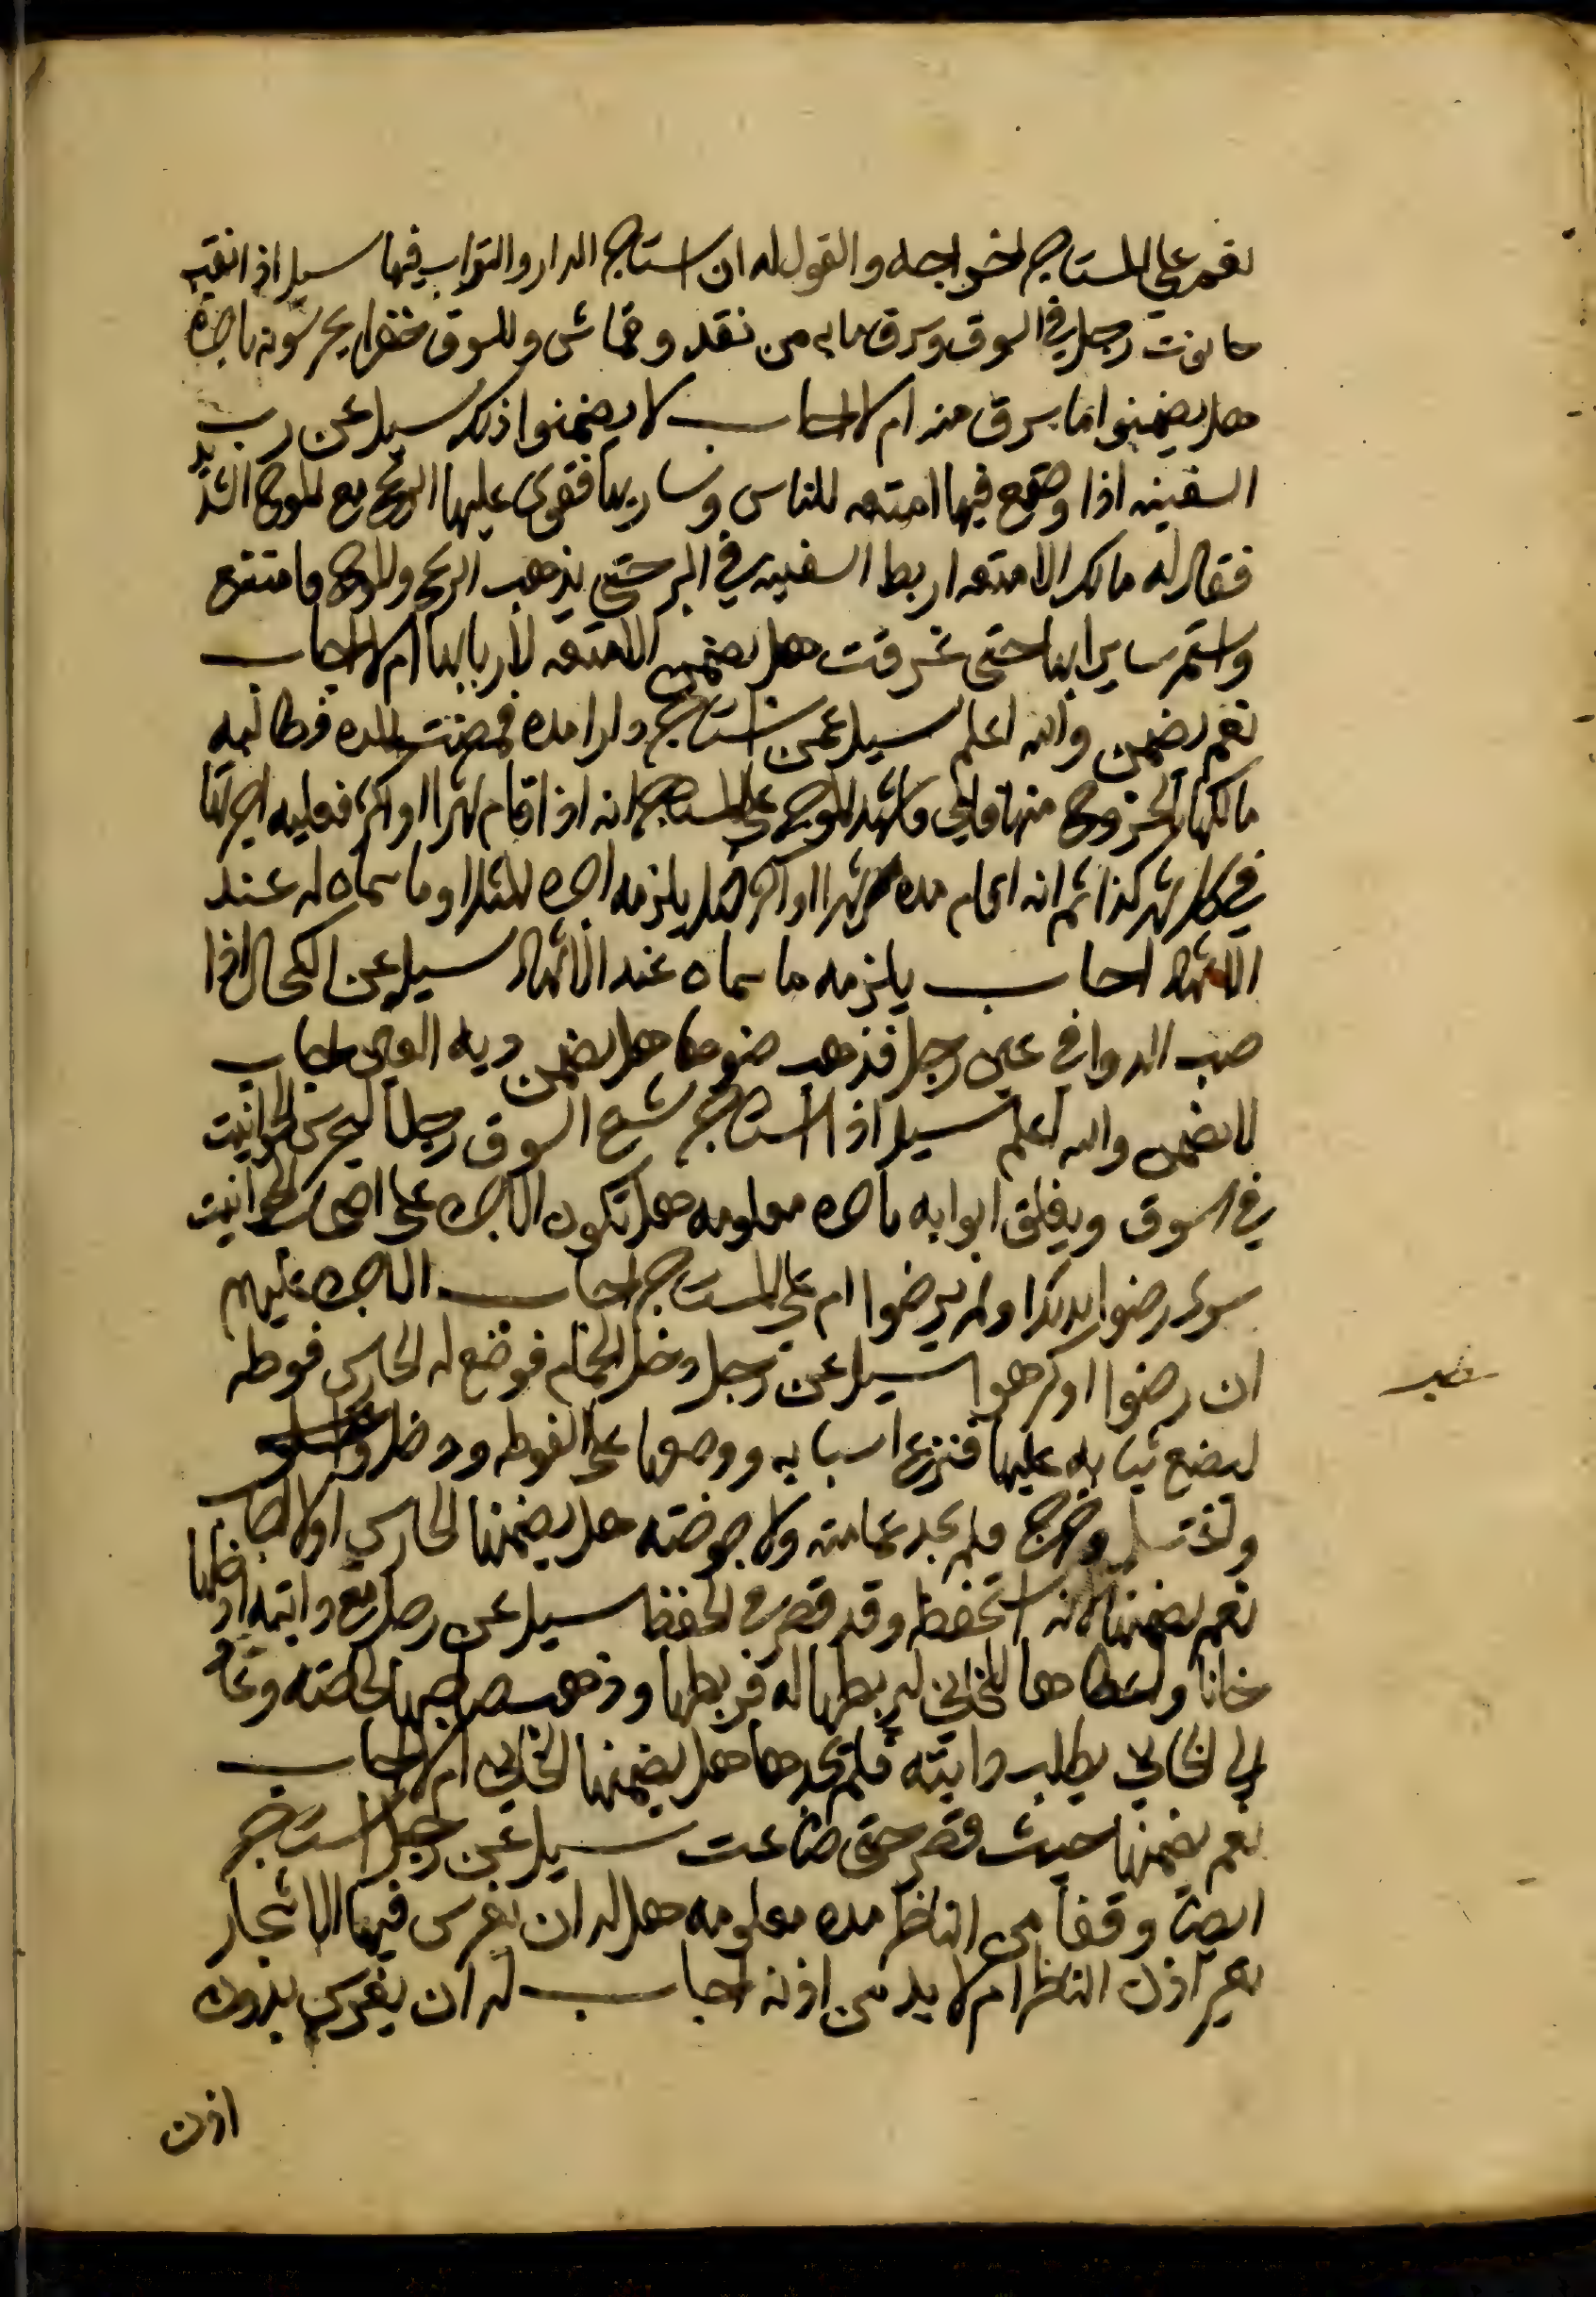 نعم على المستاجر اخراجه والقول له ان استاجر الدار والتراب فيها سيل اذا نقب
حانوت رجل في السوق وسرق ما به من نقد وقماش وللسوق خفرا يحرسونه باجرة
هل يضمنوا ما سرق منه ام لا اجاب لا يضمنوا ذلك سيل عن رب
السفينه اذا وضع فيها امتعه للناس وسار بها فقوى عليها الريح مع الموج الشديد
فقال له مالك الامتعه اربط السفينه في البر حتى يذهب الريح والموج فامتنع
واستمر سايرا بها حتى غرقت هل يضمن الامتعه لاربابها ام لا اجاب
نعم يضمن والله اعلم سيل عمن استاجر دارا مده فمضت المده فطالبه
مالكها بالخروج منها فابى فاشهد الموجر على المستاجر انه اذا قام شهرا او اكثر فعليه اجرتها
في كل شهر كذا ثم انه اقام مده شهرا او اكثر هل يلزمه اجره المثل او ما سماه له عند
الاشهاد اجاب يلزمه ما سماه عند الاشهاد سيل عن الكحال اذا
صب الدوا في عين رجل فذهب ضوها هل يضمن ديه العين اجاب
لا يضمن والله اعلم سيل اذا استاجر شيخ السوق رجلا ليحرس الحوانيت
في السوق ويغلق ابوابه باجره معلومه هل تكون الاجره على اصحاب الحوانيت
سوى رضوا بذلك او لم يرضوا ام على المستاجر اجاب الاجره عليهم
ان رضوا او كرهوا سيل عن رجل دخل الحمام فوضع له الحارس فوطه
ليضع ثيابه عليها فنزع اسبابه ووضعها على الفوطه ودخل
واغتسل وخرج فلم يجد عمامته ولا جوخته هل يضمنها الحارس او لا اجاب
نعم يضمنها لانه استحفظه وقد قصر في الحفظ سيل عن رجل مع دابته ادخلها
خانا واعطاها للخاني ليربطها له فربطها وذهب صاحبها لحاجته وجا
الى الخاني يطلب دابته فلم يجدها هل يضمنها الخاني ام لا اجاب
نعم يضمنها حيث قصر حتى ضاعت سيل عن رجل استاجر
ارضا وقفا من الناظر مده معلومه هل له ان يغرس فيها الاشجار
بغير اذن الناظر ام لا بد من اذنه اجاب له ان يغرس بدون
اذن